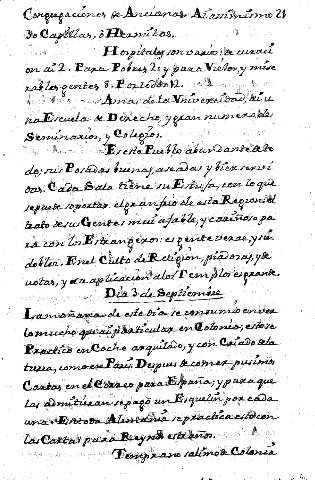 Congregaciones de Ancianas. Asimismo 21
30 Capillas, ó Hermitas.
Hospitales son varios: de curaci
on ai 2. Para Pobres 2: y para Viejos y mise
rables gentes 8. Por todos 12.
Amas de la Universidad, ai u
na Escuela de Derecho, y gran numero de
Seminarios, y Colegios.
Es este Pueblo abundante de to
do; sus Posadas buenas, aseadas y bien servi
das. Cada Sala tiene su Estufa, con lo que
se puede soportar el gran frio de esta Region. El
trato de sus Gentes mui afable, y cariñoso pa
ra con los Estrangeros: es gente veraz, y sin
doblez. En el Culto de Religion, piadosas, y de
votas, y en aplicacion a los Templos es grande.
Dia 3 de Septiembre
La mañana de este dia se consumió en ver
lo mucho que ai particular en Colonia; esto se
Practicó en Coche arquilado, y con Criado de la
tura, como en Paris. Despues de comer pusimos
Cartas, en el Correo para España; y para que
las admitieran se pagó un Esquelin por cada
una. En toda Alemania se practica esto con
las Cartas para Reynos estraños.
Temprano salimos de Colonia